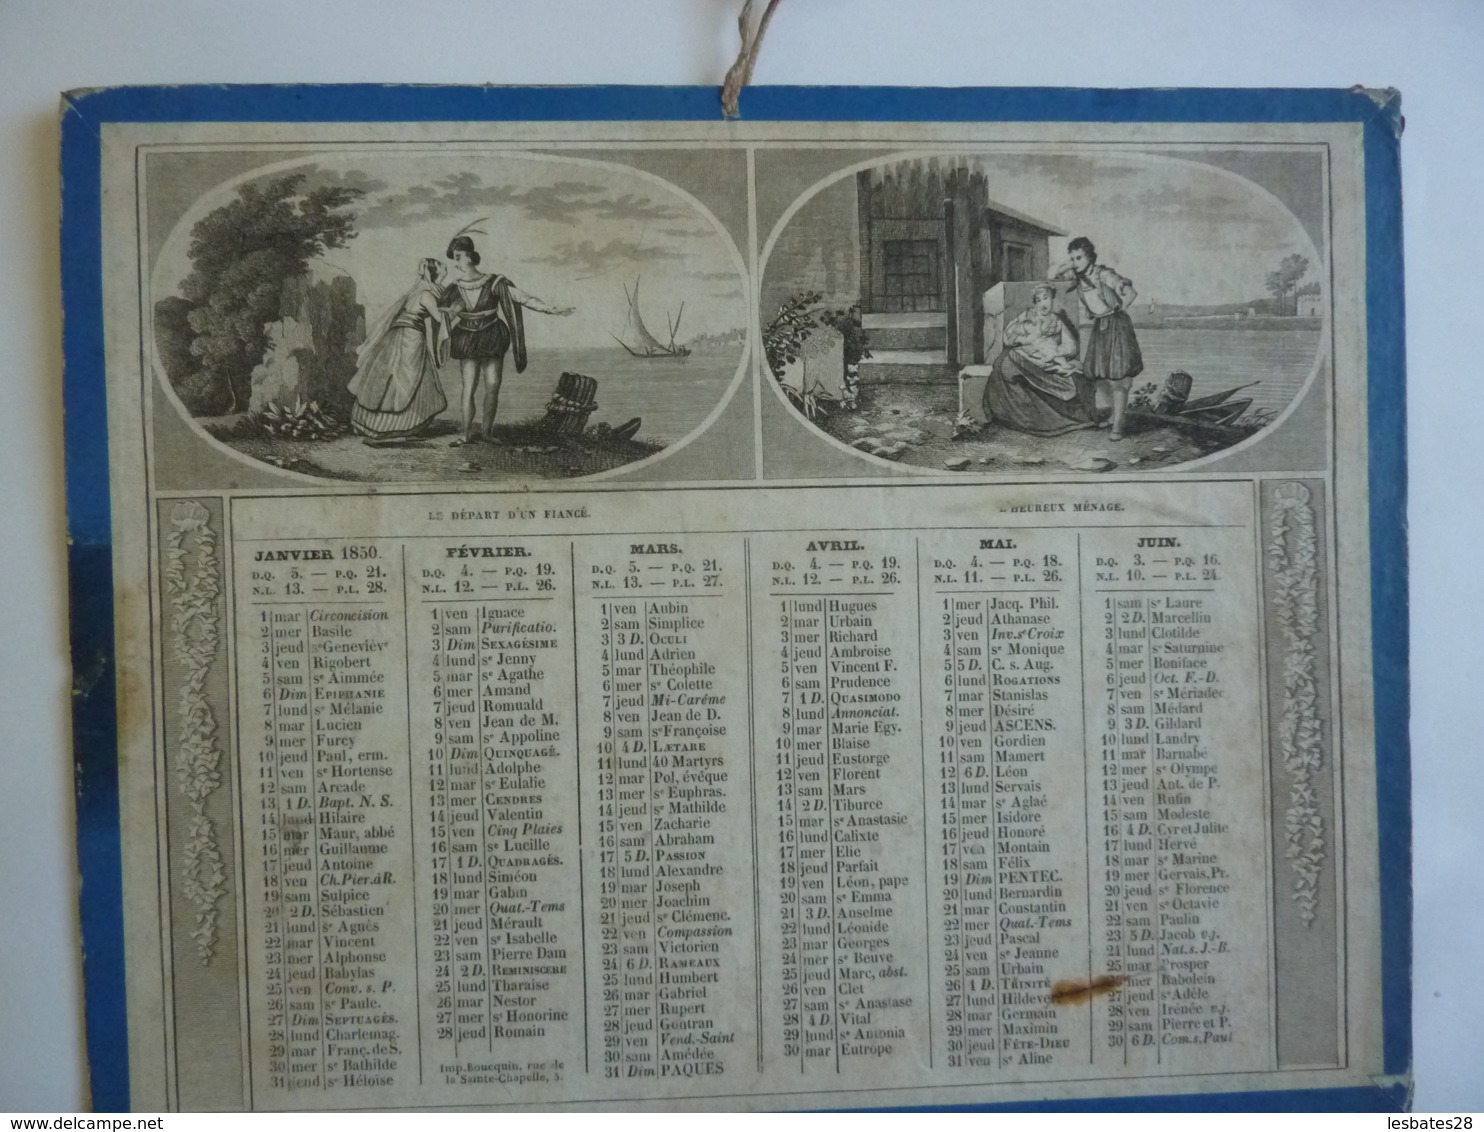 LE DÉPART D'UN FIANCÉ.
L'HEUREUX MÉNAGE.
JANVIER 1850.
D.Q. 5. — P.Q. 21.
N.L. 13. — P.L. 28.
1 mar Circoncision
2 mer Basile
3 jeud se Geneviève
4 ven Rigobert
5 sam se Aimmée
6 Dim EPIPHANIE
7 lund se Mélanie
8 mar Lucien
9 mer Furcy
10 jeud Paul, erm.
11 ven se Hortense
12 sam Arcade
13 1 D. Bapt. N. S.
14 lund Hilaire
15 mar Maur, abbé
16 mer Guillaume
17 jeud Antoine
18 ven Ch. Pier. à R.
19 sam Sulpice
20 2 D. Sébastien
21 lund se Agnès
22 mar Vincent
23 mer Alphonse
24 jeud Babylas
25 ven Conv. s. P.
26 sam se Paule.
27 Dim SEPTUAGÉS.
28 lund Charlemag.
29 mar Franç. de S.
30 mer se Bathilde
31 jeud se Héloïse
FÉVRIER.
D.Q. 4. — P.Q. 19.
N.L. 12. — P.L. 26.
1 ven Ignace
2 sam Purificatio.
3 Dim SEXAGÉSIME
4 lund se Jenny
5 mar se Agathe
6 mer Amand
7 jeud Romuald
8 ven Jean de M.
9 sam se Appoline
10 Dim QUINQUAGÉ.
11 lund Adolphe
12 mar se Eulalie
13 mer CENDRES
14 jeud Valentin
15 ven Cinq Plaies
16 sam se Lucille
17 1 D. QUADRAGÉS.
18 lund Siméon
19 mar Gabin
20 mer Quat.-Tems
21 jeud Mérault
22 ven se Isabelle
23 sam Pierre Dam
24 2 D. REMINISCERE
25 lund Tharaise
26 mar Nestor
27 mer se Honorine
28 jeud Romain
Imp. Boucquin, rue de
la Sainte-Chapelle, 5.
MARS.
D.Q. 5. — P.Q. 21.
N.L. 13. — P.L. 27.
1 ven Aubin
2 sam Simplice
3 3 D. OCULI
4 lund Adrien
5 mar Théophile
6 mer se Colette
7 jeud Mi-Carême
8 ven Jean de D.
9 sam se Françoise
10 4 D. LÆTARE
11 lund 40 Martyrs
12 mar Pol, évêque
13 mer se Euphras.
14 jeud se Mathilde
15 ven Zacharie
16 sam Abraham
17 5 D. PASSION
18 lund Alexandre
19 mar Joseph
20 mer Joachim
21 jeud se Clémenc.
22 ven Compassion
23 sam Victorien
24 6 D. RAMEAUX
25 lund Humbert
26 mar Gabriel
27 mer Rupert
28 jeud Gontran
29 ven Vend.-Saint
30 sam Amédée
31 Dim PAQUES
AVRIL.
D.Q. 4. — P.Q. 19.
N.L. 12. — P.L. 26.
1 lund Hugues
2 mar Urbain
3 mer Richard
4 jeud Ambroise
5 ven Vincent F.
6 sam Prudence
7 1 D. QUASIMODO
8 lund Annonciat.
9 mar Marie Egy.
10 mer Blaise
11 jeud Eustorge
12 ven Florent
13 sam Mars
14 2 D. Tiburce
15 mar se Anastasie
16 lund Calixte
17 mer Elie
18 jeud Parfait
19 ven Léon, pape
20 sam se Emma
21 3 D. Anselme
22 lund Léonide
23 mar Georges
24 mer se Beuve
25 jeud Marc, abst.
26 ven Clet
27 sam se Anastase
28 4 D. Vital
29 lund se Antonia
30 mar Eutrope
MAI.
D.Q. 4. — P.Q. 18.
N.L. 11. — P.L. 26.
1 mer Jacq. Phil.
2 jeud Athanase
3 ven Inv. se Croix
4 sam se Monique
5 5 D. C. s. Aug.
6 lund ROGATIONS
7 mar Stanislas
8 mer Désiré
9 jeud ASCENS.
10 ven Gordien
11 sam Mamert
12 6 D. Léon
13 lund Servais
14 mar se Aglaé
15 mer Isidore
16 jeud Honoré
17 ven Montain
18 sam Félix
19 Dim PENTEC.
20 lund Bernardin
21 mar Constantin
22 mer Quat.-Tems
23 jeud Pascal
24 ven se Jeanne
25 sam Urbain
26 1 D. TRINITÉ
27 lund Hildever
28 mar Germain
29 mer Maximin
30 jeud FÊTE-DIEU
31 ven se Aline
JUIN.
D.Q. 3. — P.Q. 16.
N.L. 10. — P.L. 24.
1 sam se Laure
2 2 D. Marcellin
3 lund Clotilde
4 mar se Saturnine
5 mer Boniface
6 jeud Oct. F.-D.
7 ven se Mériadec
8 sam Médard
9 3 D. Gildard
10 lund Landry
11 mar Barnabé
12 mer se Olympe
13 jeud Ant. de P.
14 ven Rufin
15 sam Modeste
16 4 D. Cyr et Julite
17 lund Hervé
18 mar se Marine
19 mer Gervais, Pr.
20 jeud se Florence
21 ven se Octavie
22 sam Paulin
23 5 D. Jacob v.j.
24 lund Nat. s. J.-B.
25 mar Prosper
26 mer Babolein
27 jeud se Adèle
28 ven Irénée v.j.
29 sam Pierre et P.
30 6 D. Com. s. Paul
delcampe.net
lesbates28